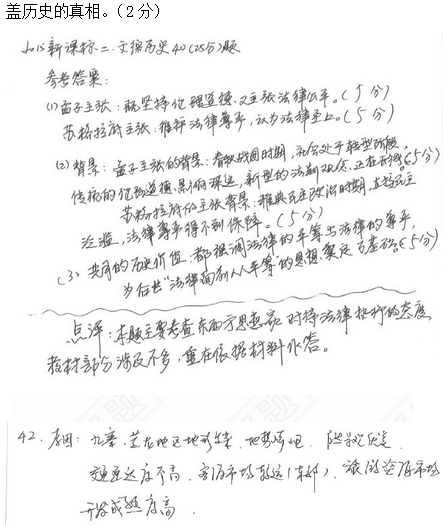 盖历史的真相。（2分）
2015新课标二.文综历史40(25分)题
参考答案：
(1)孟子主张：既坚持伦理道德，又主张法律公平。(5分)
苏格拉底主张：推护法律尊严，认为法律至上。(5分)
(2)背景：孟子主张的背景：春秋战国时期，社会处于转型阶段，
传统的伦理道德影响深远，新型的法制观念，正在形成。(5分)
苏格拉底的主张背景：雅典民主政治时期，直接民主
泛滥，法律尊严得不到保障。(5分)
(3)共同的历史价值：都强调法律的平等与法律的尊严，
为后世“法律面前人人平等”的思想奠定了基础(5分)
点评：本题主要考查东西方思想家对待法律秩序的态度
教材部分涉及不多，重在依据材料作答。
42.原因：九寨、黄龙地区地形复杂，地势高
交通通达度不高，客源市场较远(东部)，旅游资源市场
开发成熟度高.